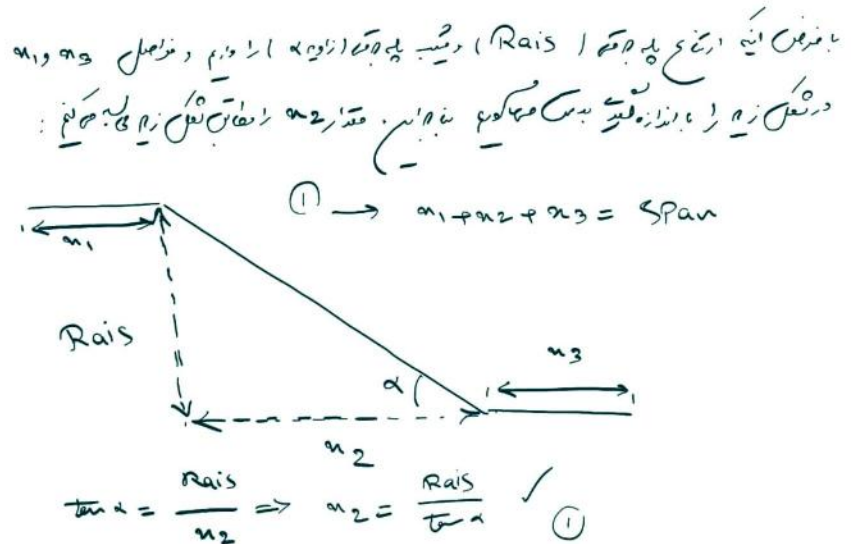 با فرض اینکه ارتفاع پله برقی ( Rais ) و شیب پله برقی (زاویه α ) را داریم و فواصل x₁ و x₃
در شکل زیر را با اندازه گیری بدست بنابراین . مقدار x2 را مطابق شکل زیر محاسبه می کنیم :
① → x₁ + x2 + x3 = Span
x₁
Rais
x3
α
x2
tan α = Rais / x2 => x2 = Rais / tan α ✓ ①